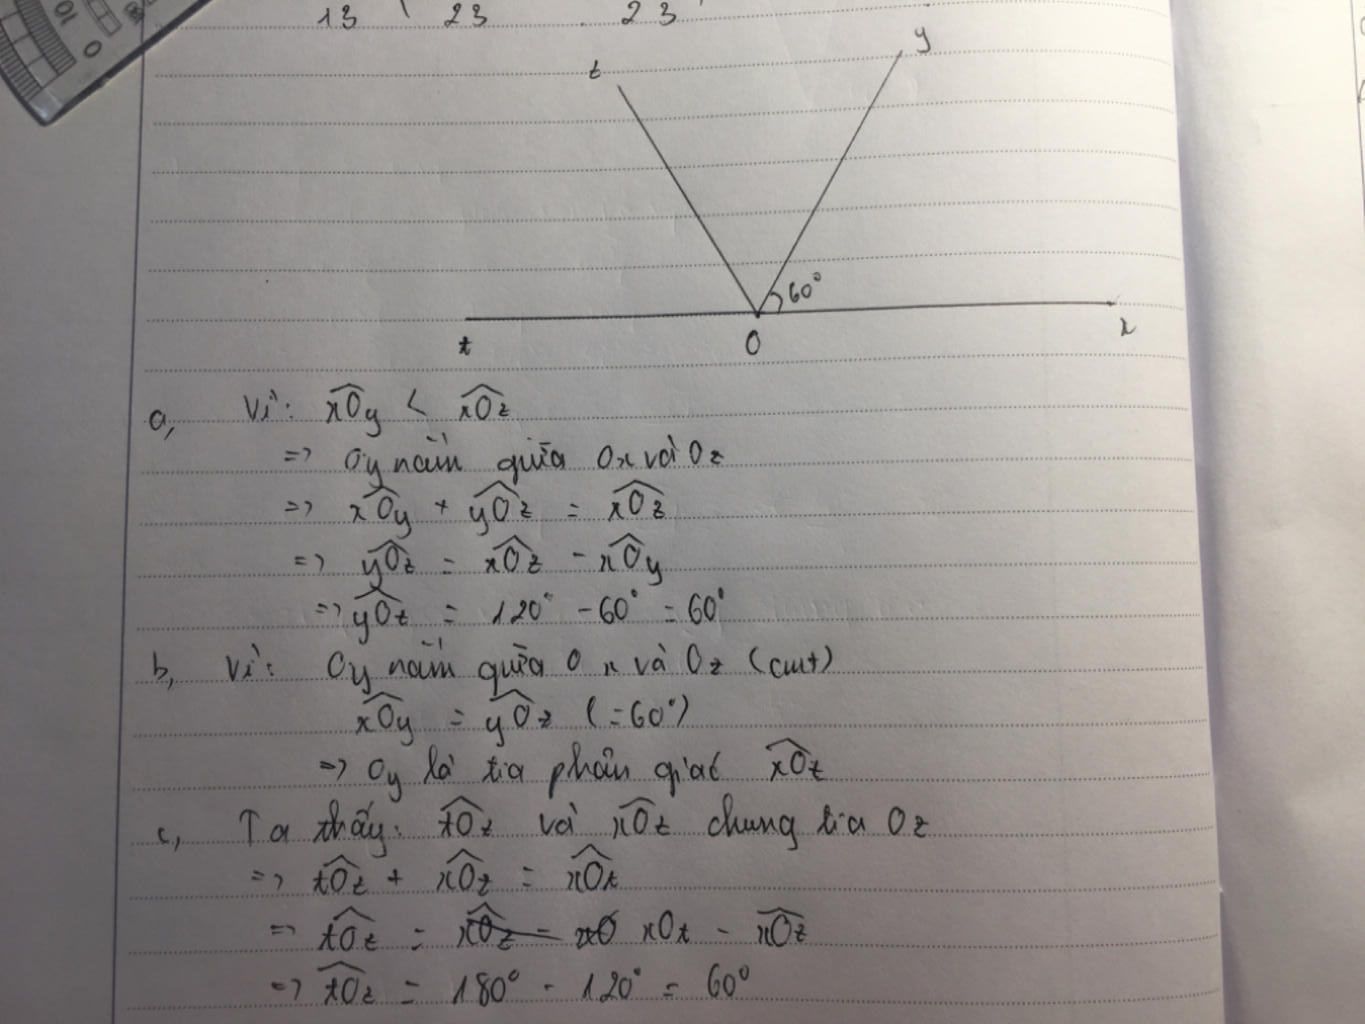 10
0
13 23 23
t
y
60°
t
O
x
a, Vì: xOy < xOz
=> Oy nằm giữa Ox và Oz
=> xOy + yOz = xOz
=> yOz = xOz - xOy
=> yOz = 120° - 60° = 60°
b, Vì: Oy nằm giữa Ox và Oz (cmt)
xOy = yOz (=60°)
=> Oy là tia phân giác xOz
c, Ta thấy: tOz và xOz chung tia Oz
=> tOz + xOz = xOt
=> tOz = xOz - xO xOt - xOz
=> tOz = 180° - 120° = 60°